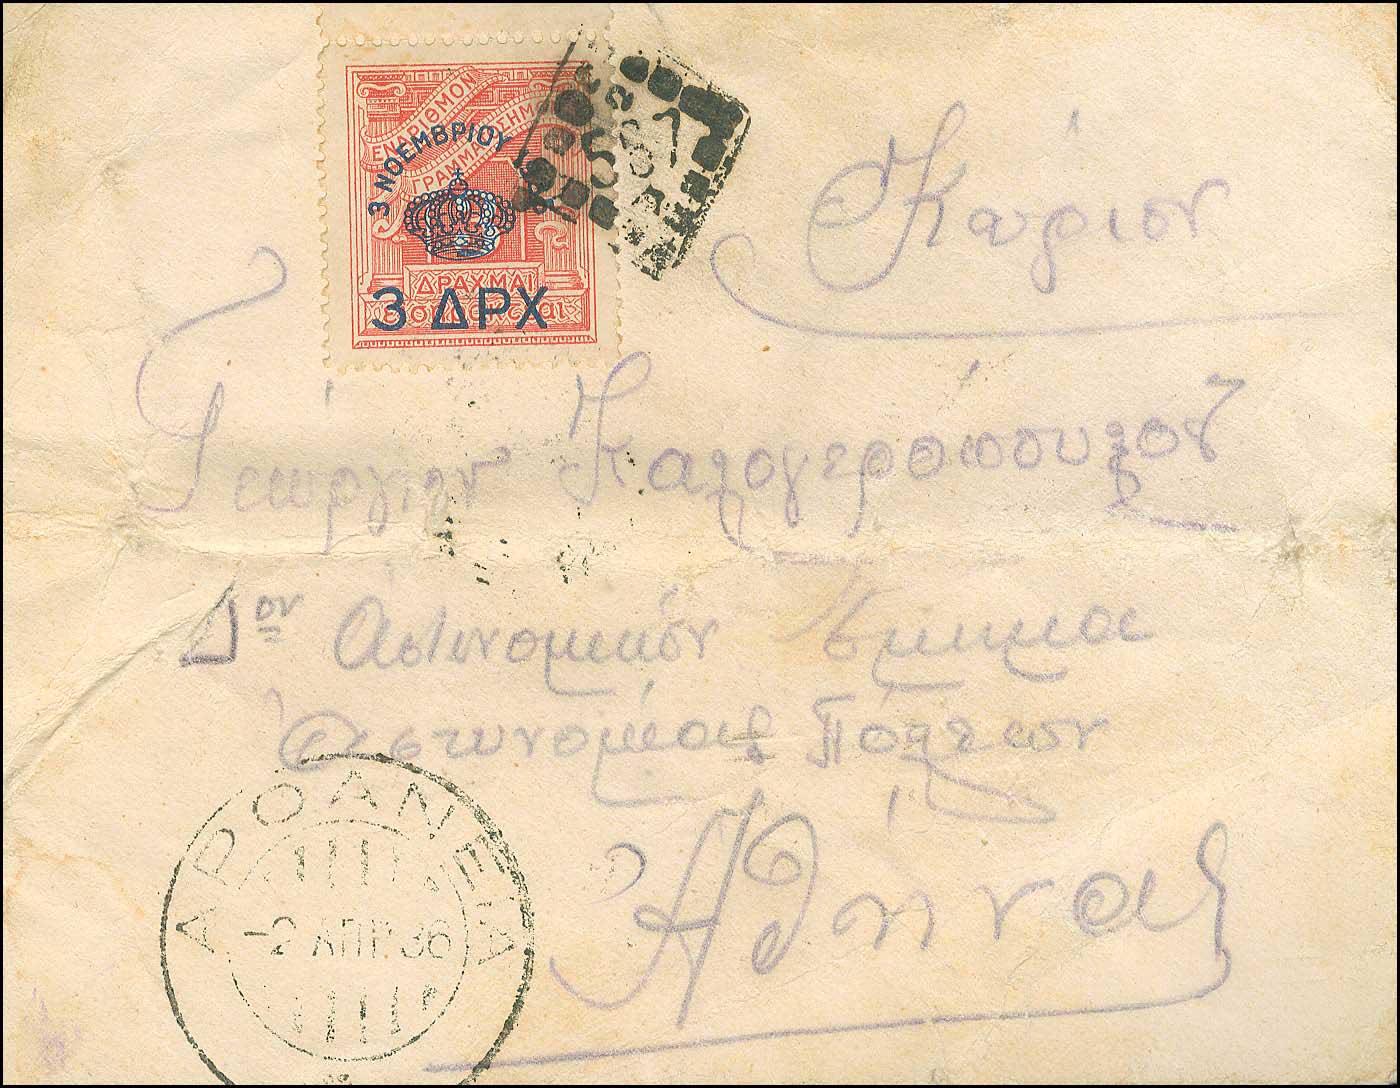 ΕΝΑΡΙΘΜΟΝ
ΓΡΑΜΜΑΤΟΣΗΜΟΝ
3 ΝΟΕΜΒΡΙΟΥ
ΔΡΑΧΜΑΙ
3 ΔΡΧ
557
Κύριον
Γεώργιον Καλογερόπουλον
Δον Αστυνομικόν Τμήμα
Αστυνομίας Πόλεων
Αθήνας
ΑΡΟΑΝΕΙΑ
-2 ΑΠΡ 36